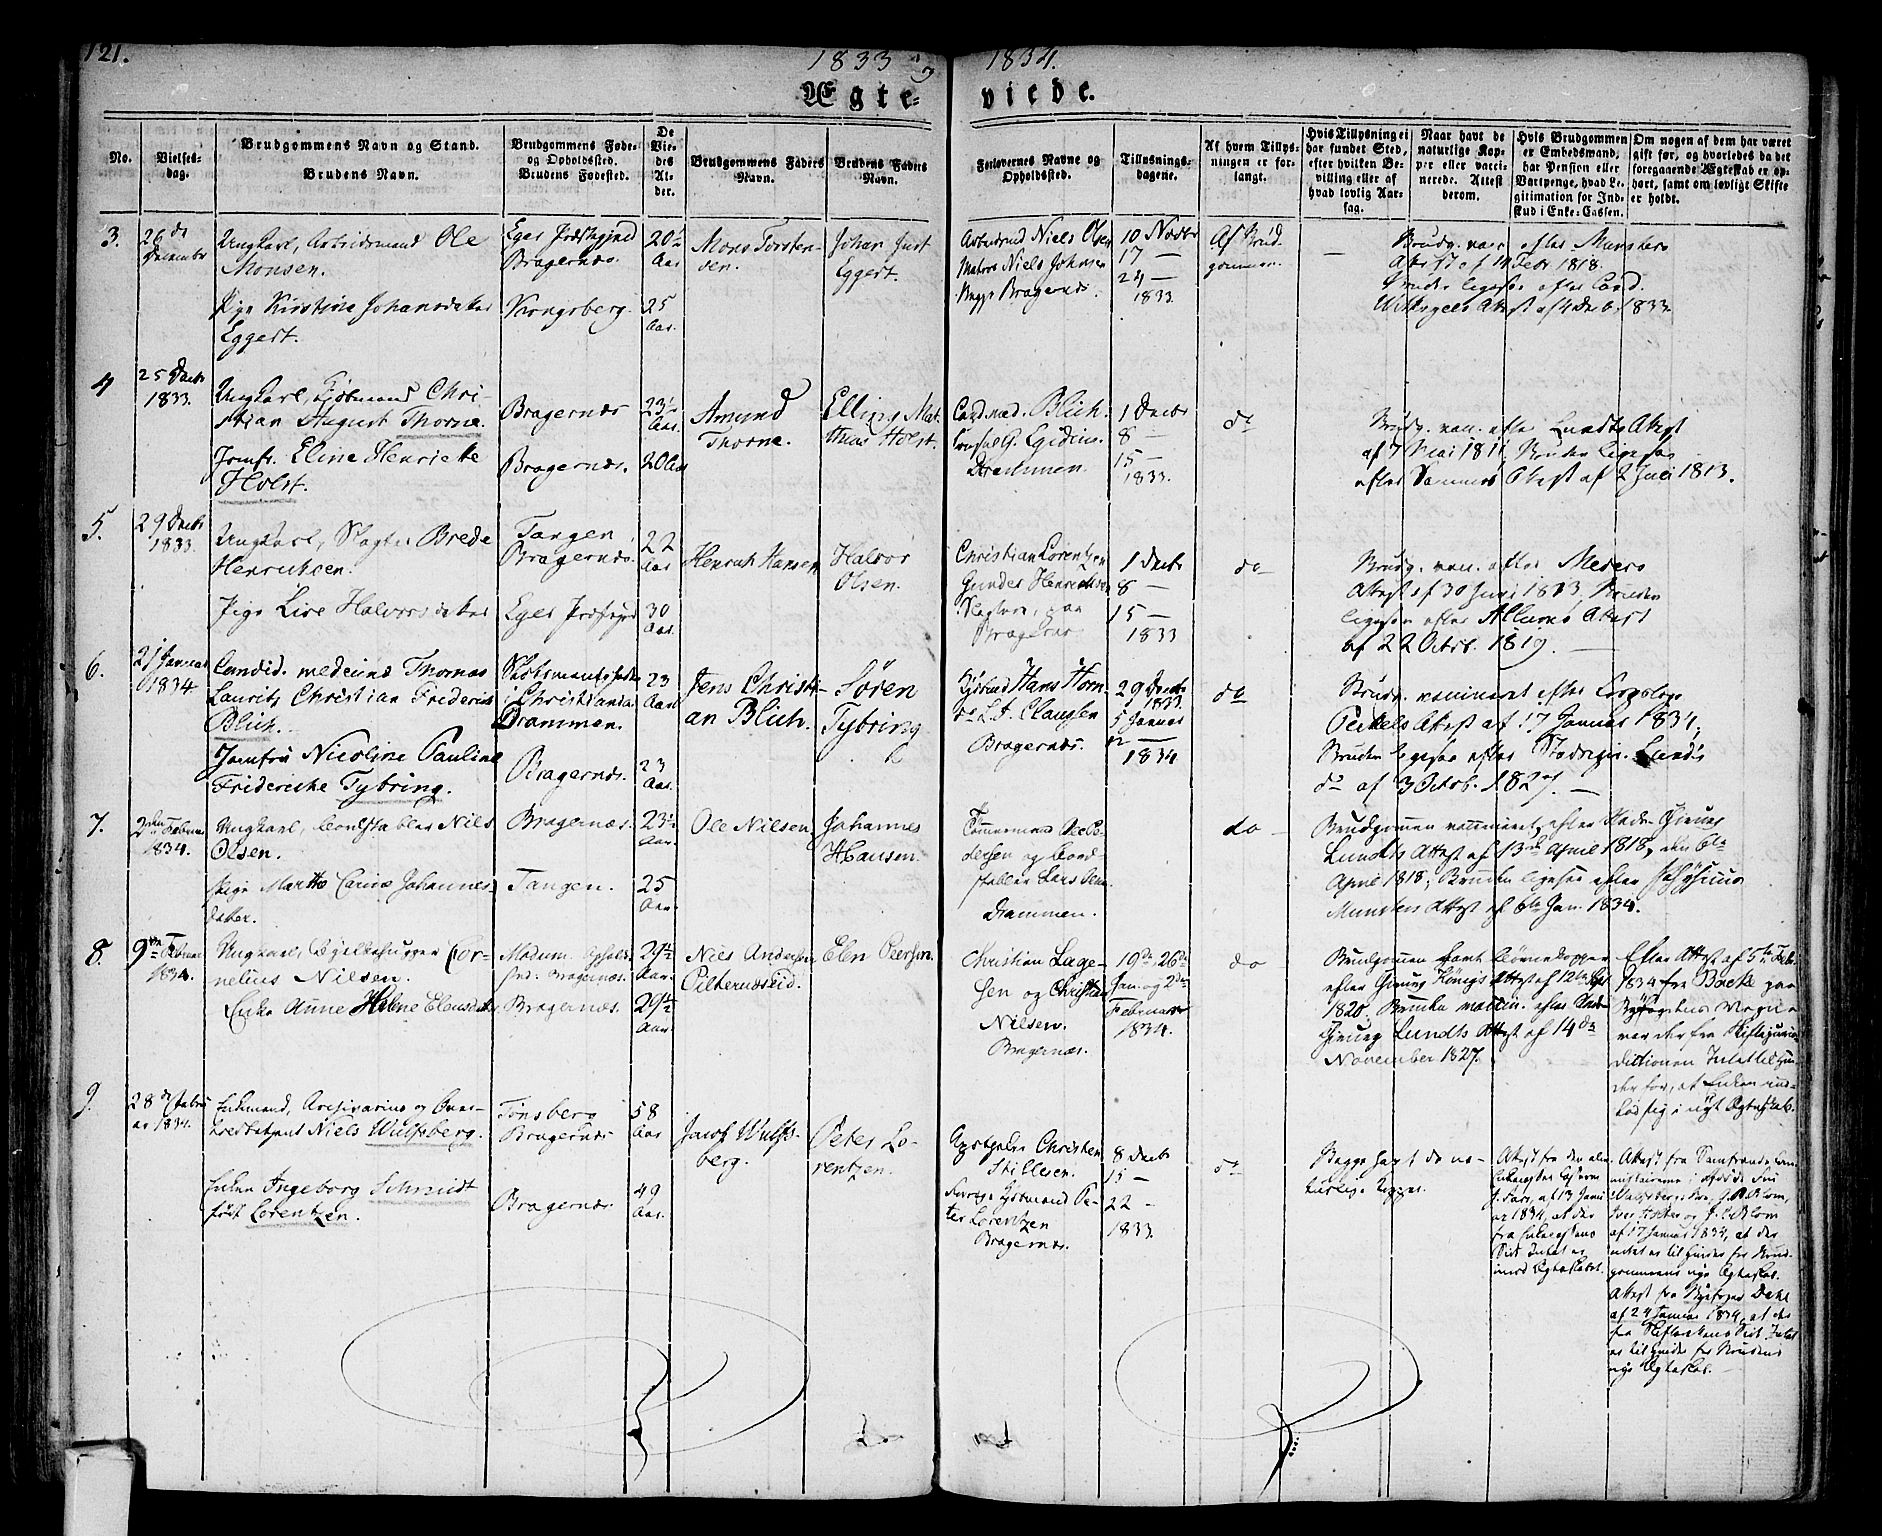 121.
1833 1834.
Ægte= viede.
No.
Vielses-
dag.
Brudgommens Navn og Stand.
Brudens Navn.
Brudgommens Føde-
og Opholdssted.
Brudens Fødested.
De
Vie-
des
Al-
der.
Brudgommens Faders
Navn.
Brudens Faders
Navn.
Forlovernes Navne og
Opholdssted.
Tillysnings-
dagene.
Af hvem Tillys-
ningen er for-
langt.
Hvis Tillysning ei
har fundet Sted,
efter hvilken Be-
villing eller af
hvad lovlig Aar-
sag.
Naar havt de
naturlige Kop-
per eller vacci-
nerede. Attest
derom.
Hvis Brudgommen
er Embedsmand,
har Pension eller
Vartpenge, hvad Le-
gitimation for Ind-
skud i Enke-Cassen.
Om nogen af dem har været
gift før, og hvorledes da det
foregaaende Ægteskab er op-
hørt, samt om lovligt Skifte
er holdt.
3.
26 de
December
Ungkarl, Arbeidsmand Ole
Monsen.
Pige Kirstine Johansdatter
Eggert.
Eger Præstegjeld
Bragernæs.
Kongsberg.
20½
Aar
25
Aar.
Mons Torsten-
sen.
Johan Just
Eggert.
Niels Olsen
Matros Niels Johnsen
Begge Bragernæs.
10 Novbr
17 —
24 —
1833.
Af Brud-
gommen.
—
Brudg. vacc. efter Munsters
Attest af 14 Febr 1818.
Bruden ligesaa efter Cand.
Attest af 4 Decb. 1833.
4
25 Decbr
1833.
Ungkarl, Kjøbmand Chri-
stian August Thorne.
Jomfr. Eline Henriette
Holst.
Bragernæs
Bragernæs.
23½
Aar.
20 Aar
Amund
Thorne.
Elling Mat-
thias Holst.
Cand. med. Blich.
G. Egidius
Drammen.
1 Decbr
8 —
15 —
1833.
do
Brudg. vacc. efter Lundts Attest
af 7 Mai 1811, Bruden ligesaa
efter Sammes Attest af 2 Juli 1813.
5.
29 Decbr
1833.
Ungkarl, Slagter Brede
Henriksen.
Pige Live Halvorsdatter
Tangen
Bragernæs.
Eger Præstegjeld
22
Aar
30
Aar.
Henrik Hansen
Halvor
Olsen.
Christian Lorentzen
Gunder Henriksen
Slagtere, paa
Bragernæs
1 Decbr
8 —
15 —
1833
do
Brudg. vacc. efter Meiers
Attest af 30 Juni 1813. Bruden
ligesaa efter Attest
af 22 Octbr. 1819. —
6.
21 Januar
1834.
Candid. medicinæ Thomas
Laurits Christian Frederik
Blich.
Jomfru Nicoline Pauline
Friderikke Tybring.
i Christiania
Drammen.
Bragernæs.
23
Aar
23
Aar.
Jens Christi-
an Blich.
Søren
Tybring
Kjøbmd Hans Horn
L. J. Clausen
Bragernæs.
29 Decbr
1833.
5 Januar
12 —
1834
do
Brudg. vaccineret efter
Attest af 17 Januar 1834,
Bruden ligesaa efter Lunds
do af 3 Octob. 1827. —
7.
2den Februar
1834.
Ungkarl, Niels
Olsen.
Pige Marthe Carine Johannes-
datter.
Bragernæs.
Tangen.
23½
Aar.
25
Aar.
Ole Nilsen
Johannes
Hansen.
Tømmermand Ole Pe-
dersen og
Lars
Drammen.
do
Brudgommen vaccineret, efter
Lundts Attest af 13de April 1818,
April 1818; Bruden ligesaa efter
Munsters Attest af 6te Jan. 1834.
8.
9de Februar
1834.
Ungkarl, Bjelkehugger Cor-
nelius Nilsen.
Enke Anne Helene Elensdatter
Modum. Opholds-
sted: Bragernæs.
Bragernæs.
29½
Aar.
29½
Aar.
Niels Andersen
Elen Peersen.
Christian Lage-
sen og Christian
Nilsen.
Bragernæs.
19de 26de
Jan. og 2den
Februar
1834.
do
Brudgommen havt Børnekopper
efter Königs Attest af 12te
1820. Bruden vaccin. efter
Lundts Attest af 14de
November 1827.
Efter Attest af 5te Febr
1834 fra
var der fra
ditionen Intet til Hin-
der for, at Enken ind-
lod sig i nyt Ægteskab.
9.
28 Febru
ar 1834.
Enkemand, Archivarius og Over-
Niels Wulfsberg.
Enken Ingeborg Schmidt
født Lorentzen.
Tønsberg
Bragernæs
Bragernæs.
58
Aar
49
Aar.
Jacob Wulfs-
berg.
Peter Lo-
rentzen.
Christen
Stillesen.
Kjøbmand Pe-
ter Lorentzen
Bragernæs.
8 Decbr
15 —
22 —
1833.
do
Begge havt de na-
turlige Kopper.
Attest fra den alm.
Enkekasse
af 13 Janu
ar 1834, at der
fra Enkekassens
Side Intet er
imod Ægteskabet.
Attest fra
af 17 Januar 1834, at der
intet er til Hinder for Brud-
gommens nye Ægteskab.
Attest fra Byefoged Dahl
af 24 Januar 1834, at der
fra Skifterettens Side Intet
er til Hinder for Brudens
nye Ægteskab. —